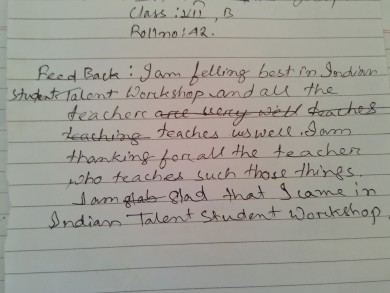 Class : VII, B
Roll no : 42.
Feed Back : I am felling best in Indian
Students Talent Workshop and all the
teachers are very well teaches
teaching teaches us well. I am
thanking for all the teachers
who teaches such those things.
I am glab glad that I came in
Indian Talent Student Workshop